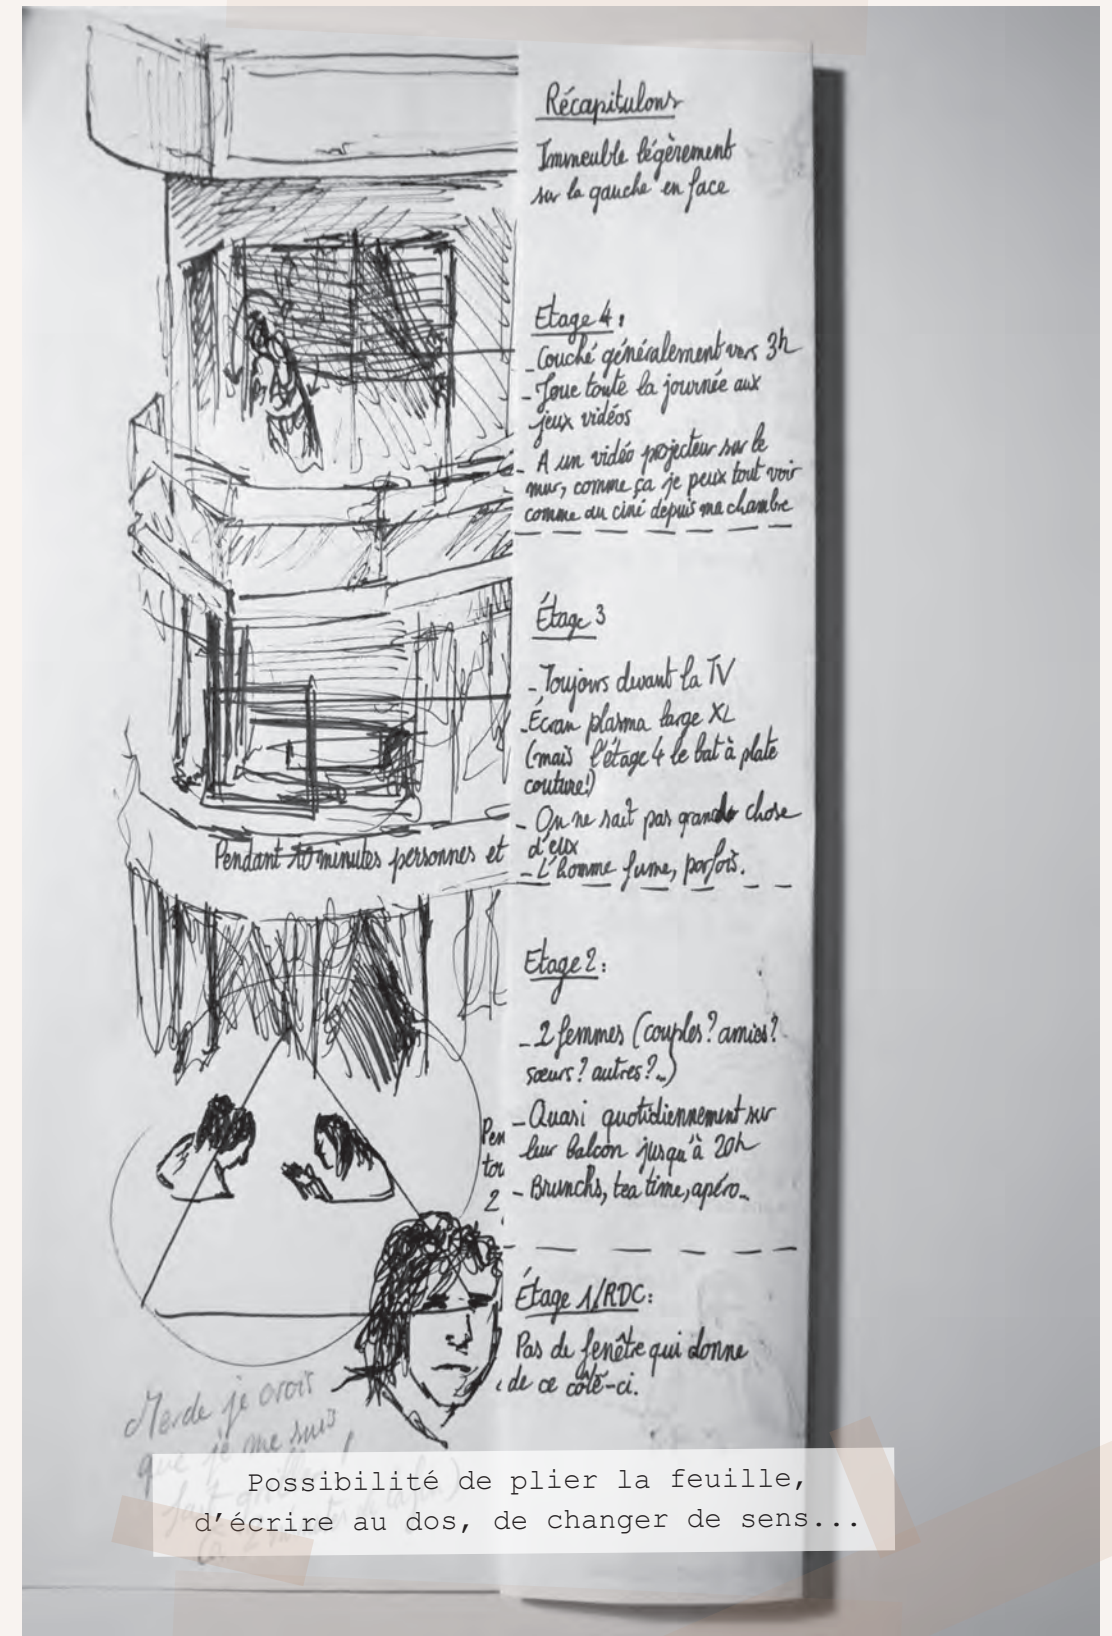 Récapitulons
Immeuble légèrement
sur la gauche en face
Etage 4 :
- Couché généralement vers 3h
- Joue toute la journée aux
jeux vidéos
- A un vidéo projecteur sur le
mur, comme ça je peux tout voir
comme au ciné depuis ma chambre
Étage 3
- Toujours devant la TV
- Écran plasma large XL
(mais l'étage 4 le bat à plate
couture!)
- On ne sait pas grande chose
d'eux
- L'homme fume, parfois.
Pendant 10 minutes personnes et
Etage 2 :
- 2 femmes (couples? amies?
sœurs? autres?..)
- Quasi quotidiennement sur
leur balcon jusqu'à 20h
- Brunchs, tea time, apéro..
Pen
tou
2
Étage 1/RDC :
Pas de fenêtre qui donne
de ce côté-ci.
Merde je crois
que je me suis
fait !
Possibilité de plier la feuille,
d'écrire au dos, de changer de sens...